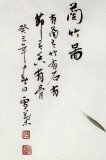 蘭竹圖
有蘭有竹有石有
節有香有骨
癸三年春日雪